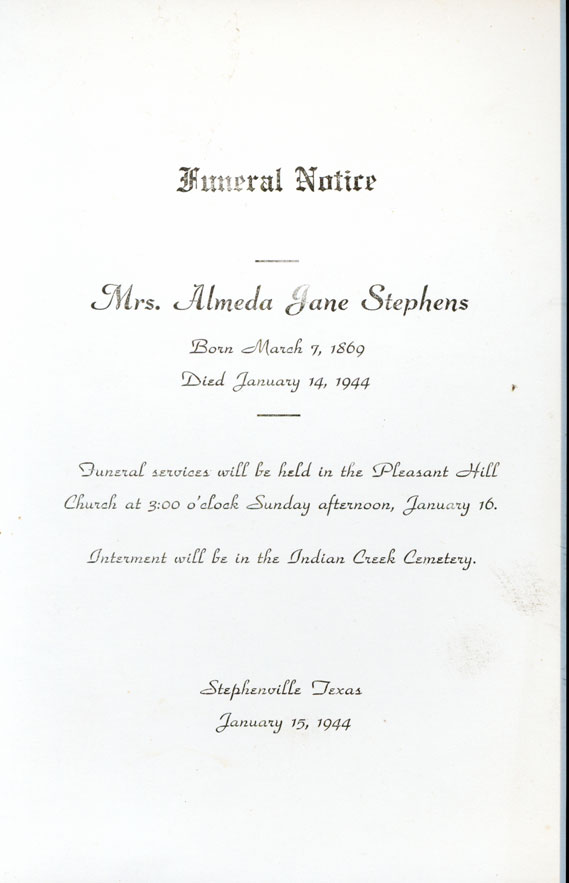 Funeral Notice
Mrs. Almeda Jane Stephens
Born March 7, 1869
Died January 14, 1944
Funeral services will be held in the Pleasant Hill
Church at 3:00 o'clock Sunday afternoon, January 16.
Interment will be in the Indian Creek Cemetery.
Stephenville Texas
January 15, 1944